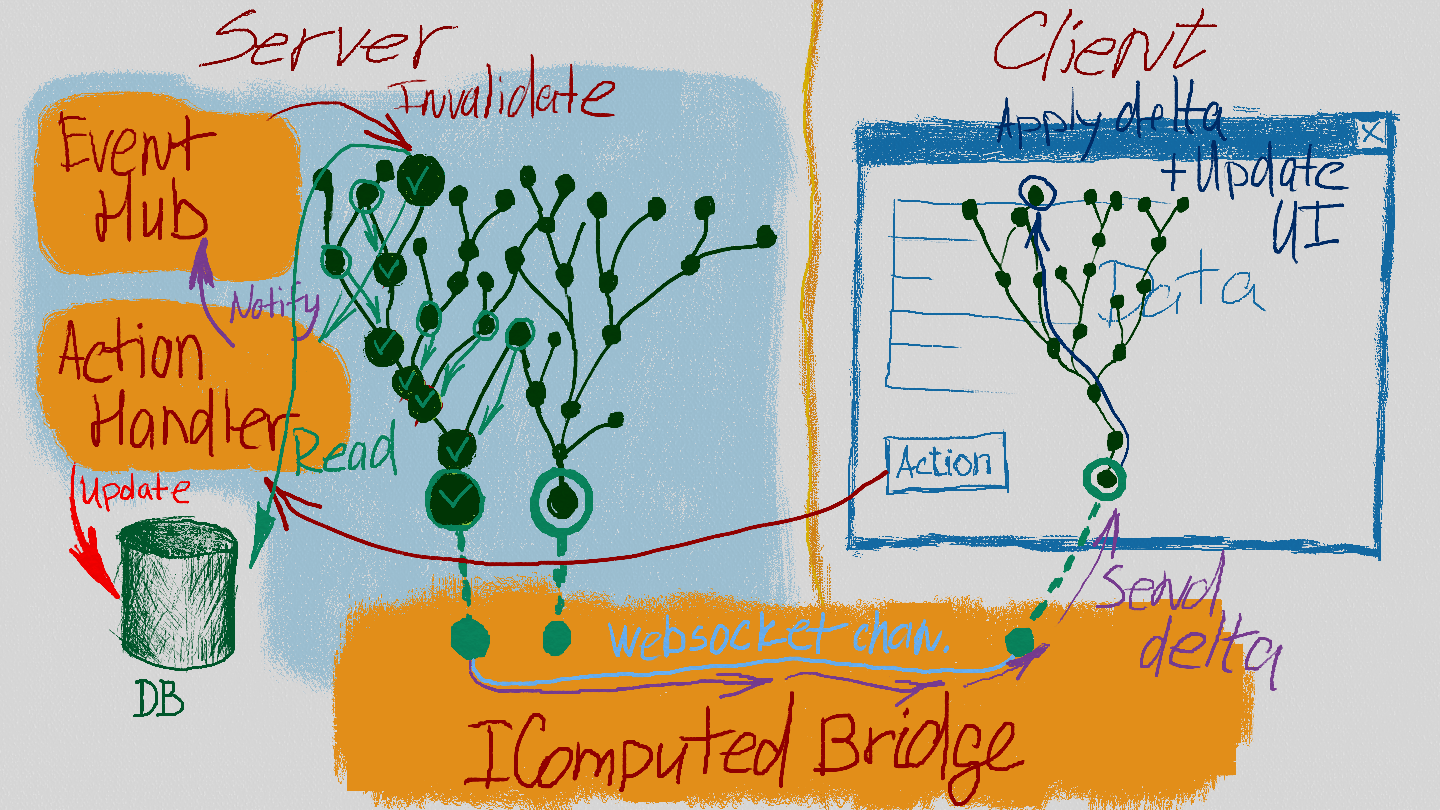 Server
Client
Invalidate
Event
Hub
Notify
Action
Handler
Read
Update
DB
Apply delta
+Update
UI
Data
Action
Send
delta
Websocket chan.
IComputed Bridge